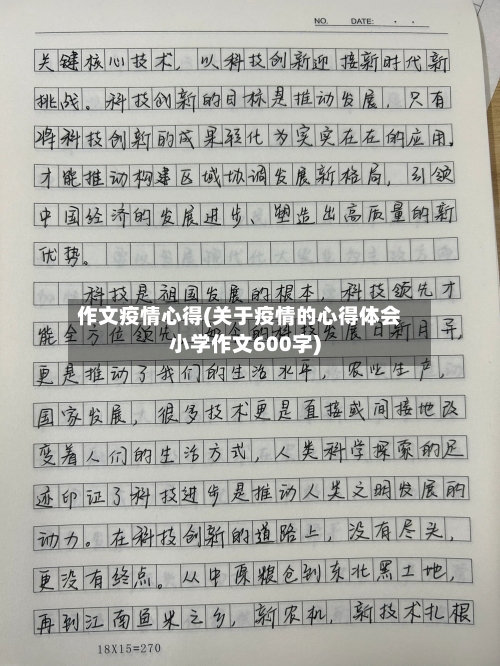 NO.          DATE:    ·    ·
关键核心技术，以科技创新迎接新时代新
挑战。科技创新的目标是推动发展，只有
将科技创新的成果转化为实实在在的应用，
才能推动构建区域协调发展新格局，引领
中国经济的发展进步、塑造出高质量的新
优势。
科技是祖国发展的根本，科技领先才
作文疫情心得(关于疫情的心得体会
能全方位领先。 的科技发展日新月异，
小学作文600字)
更是推动了我们的生活水平，农业生产，
国家发展，很多技术更是直接或间接地改
变着人们的生活方式，人类科学探索的足
迹印证了科技进步是推动人类文明发展的
动力。在科技创新的道路上，没有尽头，
更没有终点。从中原粮仓到东北黑土地，
再到江南鱼米之乡，新农机，新技术扎根
18X15=270